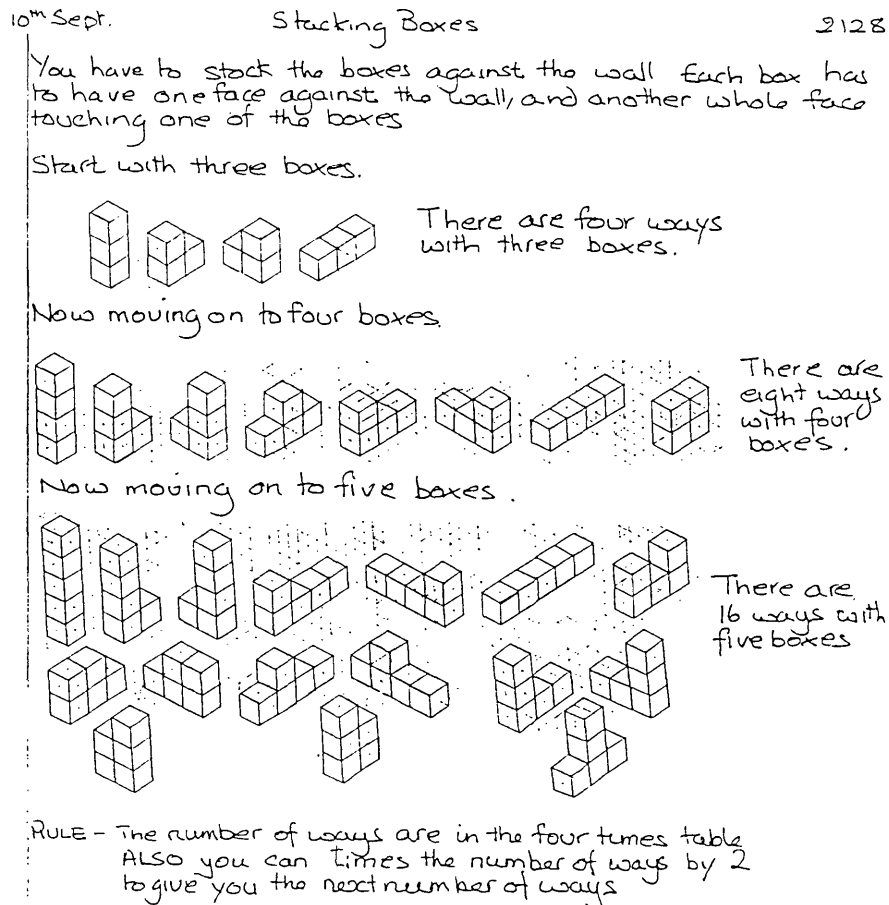 10th Sept. Stacking Boxes 2128
You have to stack the boxes against the wall Each box has
to have one face against the wall, and another whole face
touching one of the boxes
Start with three boxes.
There are four ways
with three boxes.
Now moving on to four boxes.
There are
eight ways
with four
boxes.
Now moving on to five boxes.
There are
16 ways with
five boxes
RULE - The number of ways are in the four times table
ALSO you can times the number of ways by 2
to give you the next number of ways